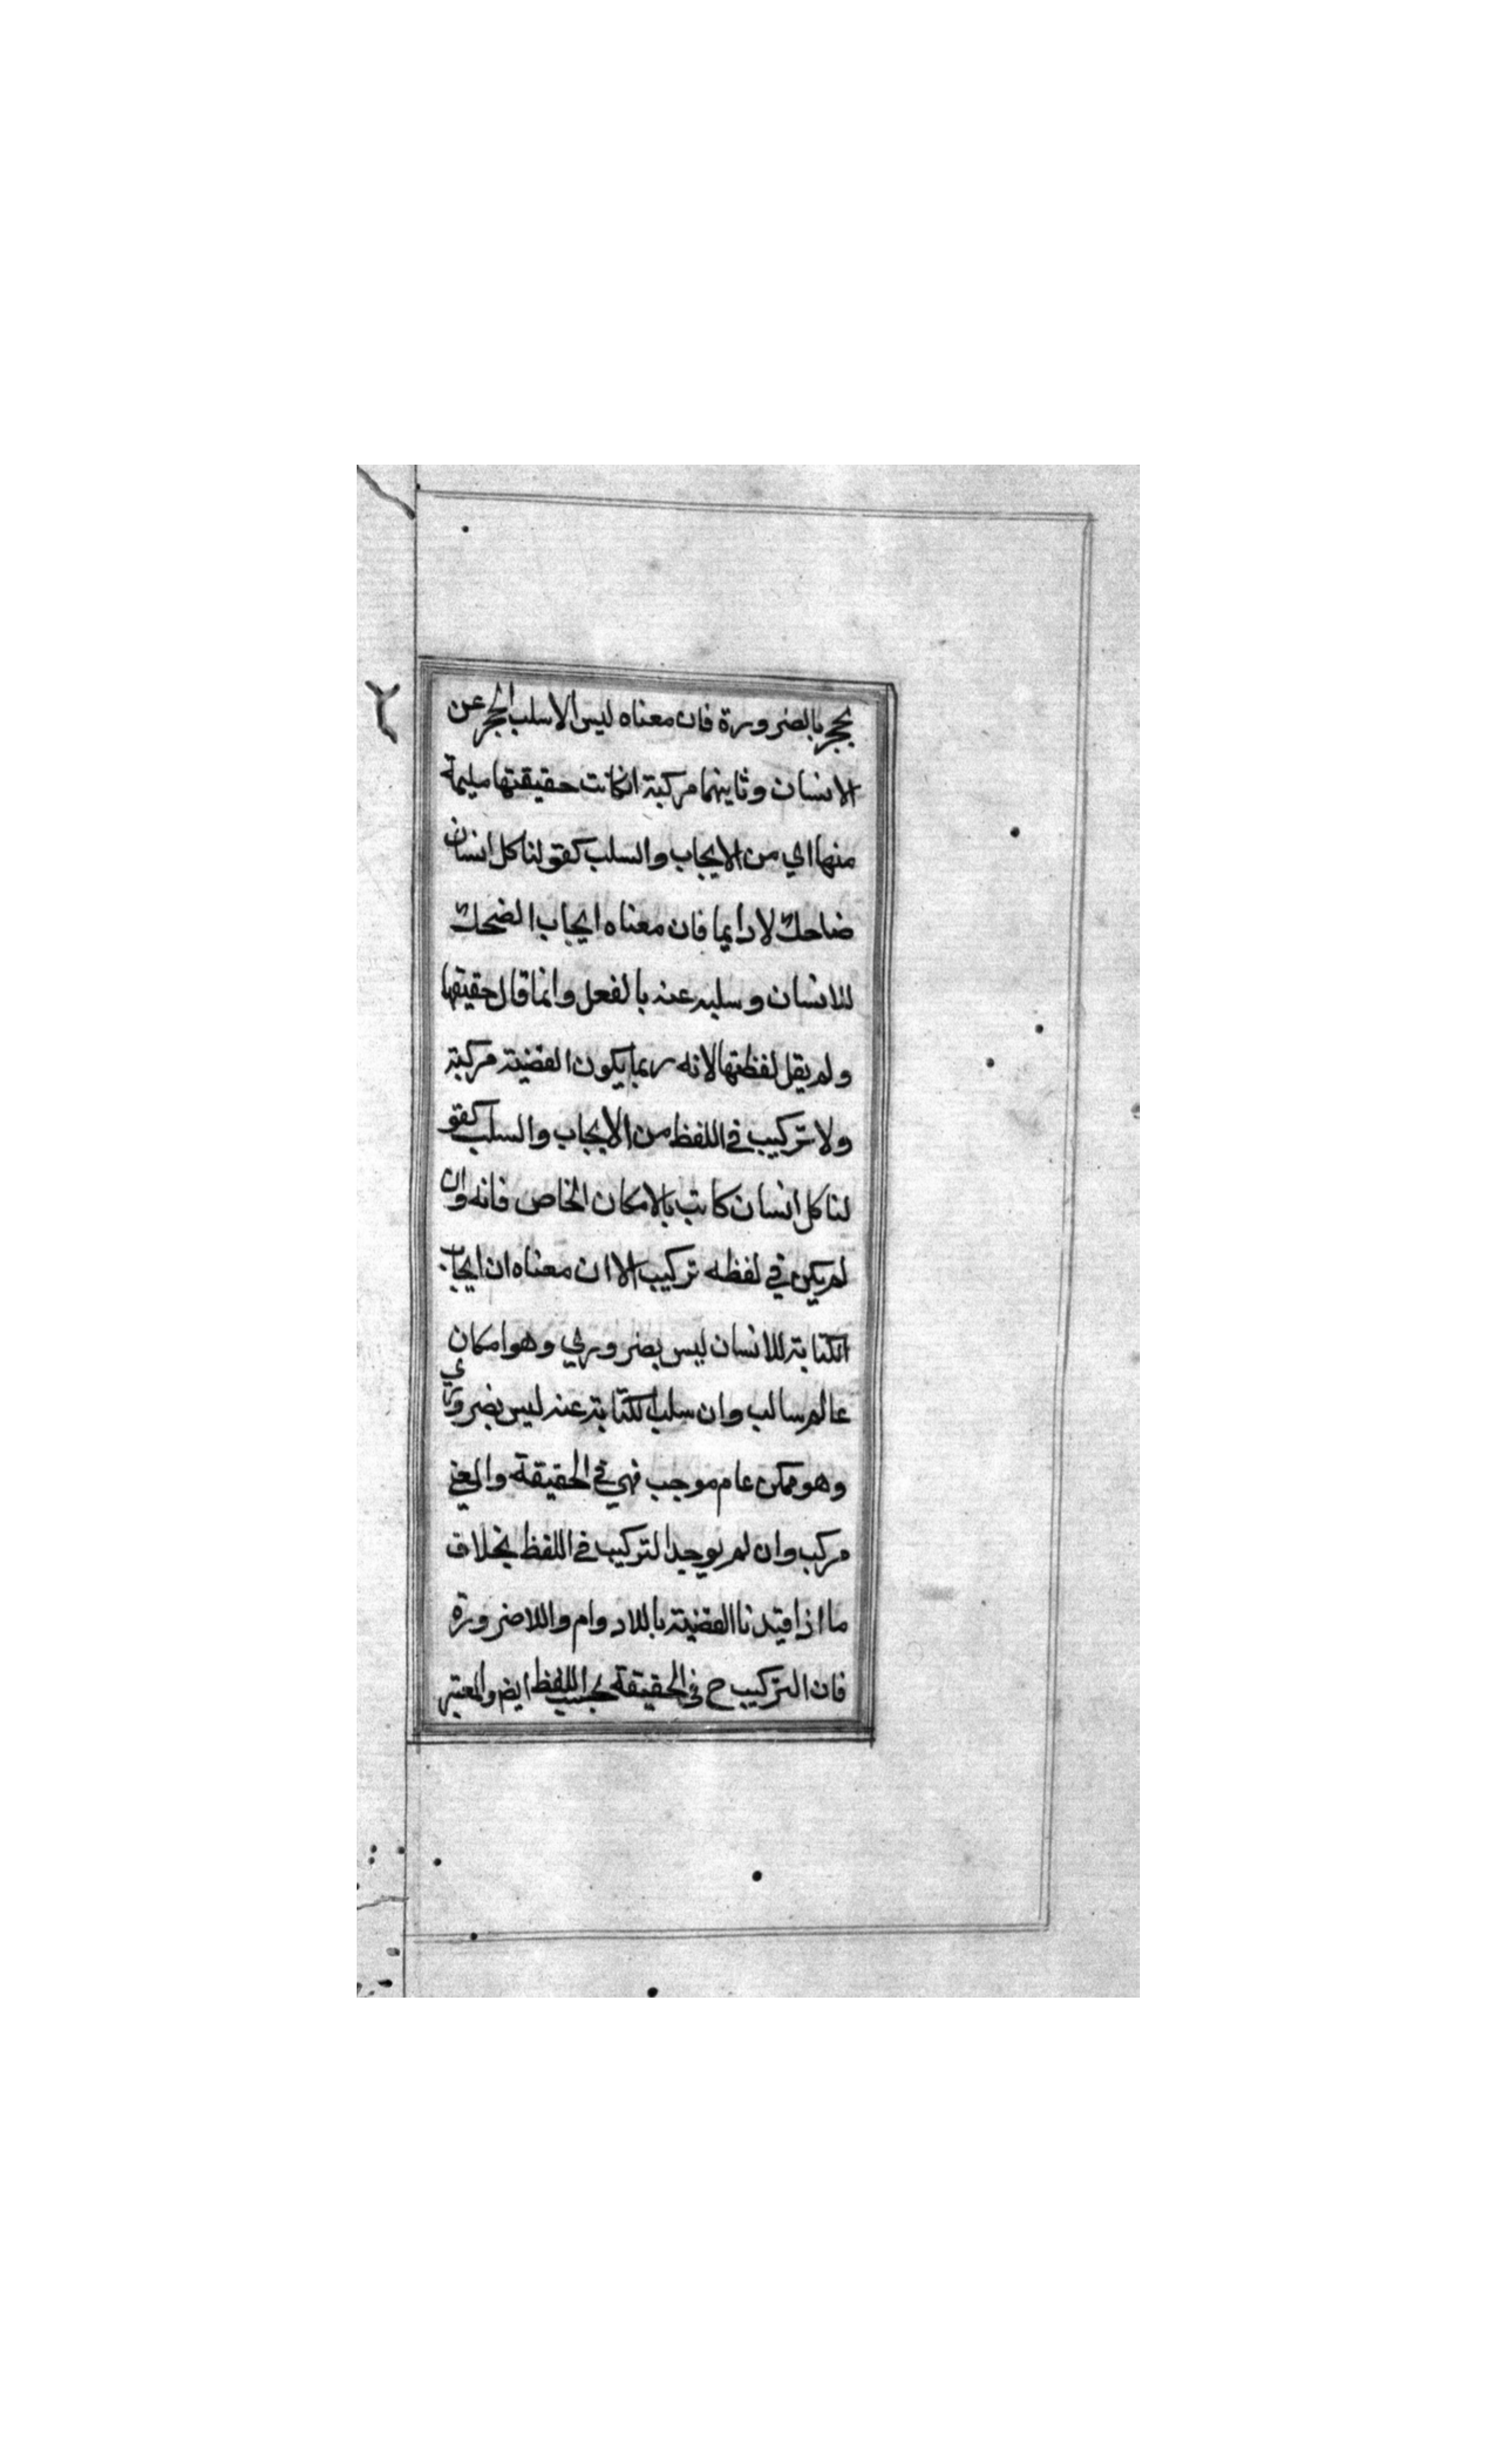 بحجر بالضرورة فان معناه ليس الا سلب الحجر عن
الانسان وثانيهما مركبة انكانت حقيقتها ملتمة
منها اي من الايجاب والسلب كقولنا كل انسان
ضاحك لا دايما فان معناه ايجاب الضحك
للانسان وسلبه عنه بالفعل وانما قال حقيقتها
ولم يقل لفظتها لانه ربما يكون القضية مركبة
ولا تركيب في اللفظ من الايجاب والسلب كقو
لنا كل انسان كاتب بالامكان الخاص فانه وان
لم يكن في لفظه تركيب الا ان معناه ان ايجاب
الكتابة للانسان ليس بضروري وهو امكان
عالم سالب وان سلب الكتابة عنه ليس بضروري
وهو ممكن عام موجب فهي في الحقيقة والمعنى
مركب وان لم يوجد التركيب في اللفظ بخلاف
ما اذا قيدنا القضية باللادوام واللاضرورة
فان التركيب ح في الحقيقة بحسب اللفظ ايضا والمعتبر